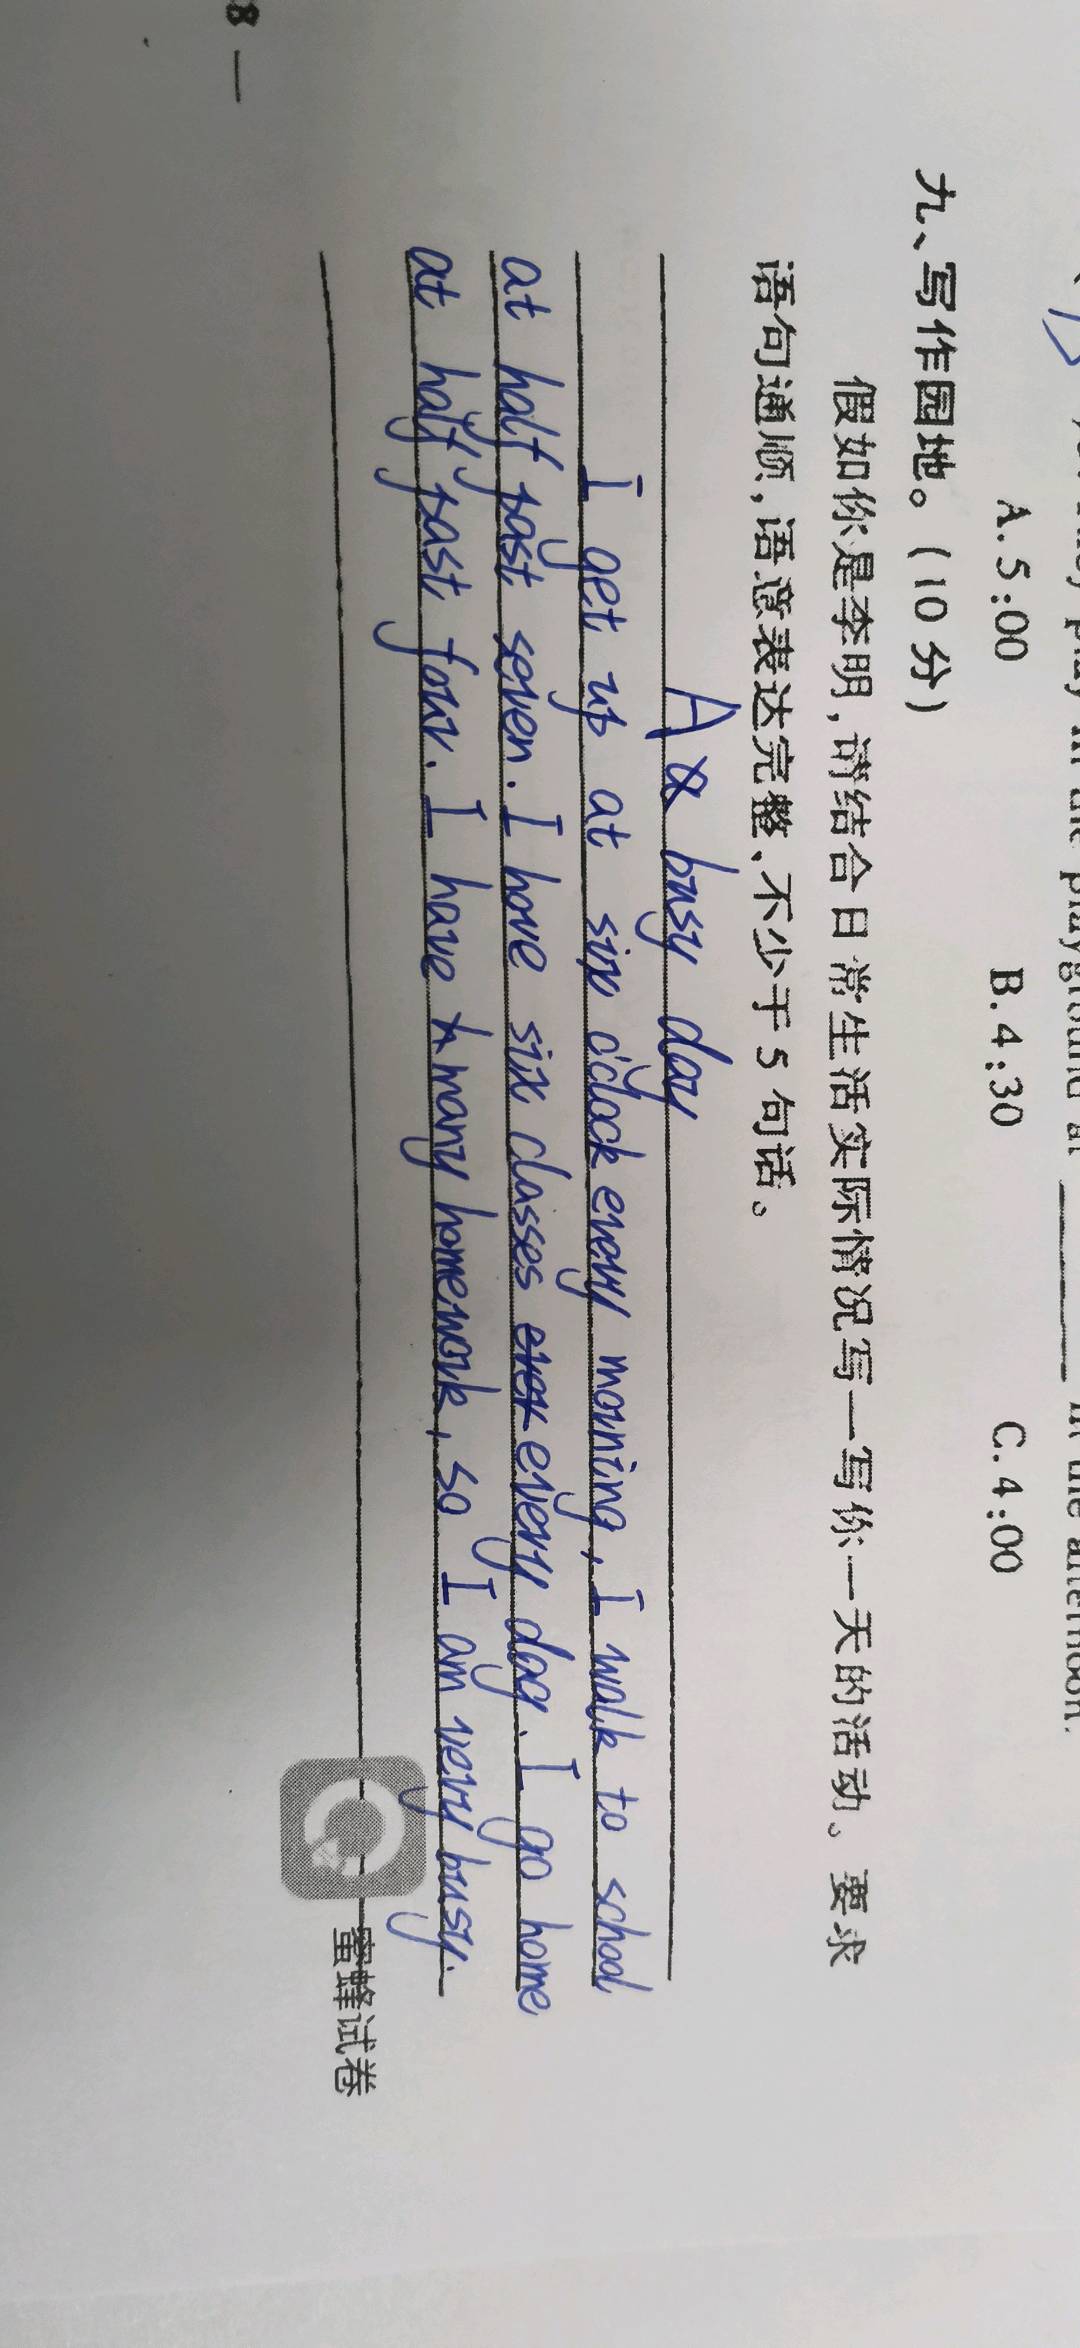 A. 5:00 B. 4:30 C. 4:00
九、写作园地。(10 分)
假如你是李明,请结合日常生活实际情况写一写你一天的活动。要求
语句通顺,语意表达完整,不少于 5 句话。
A busy day
I get up at six o'clock every morning, I walk to school
at half past seven. I have six classes every day. I go home
at half past four. I have many homework, so I am very busy.
蜜蜂试卷
8 —